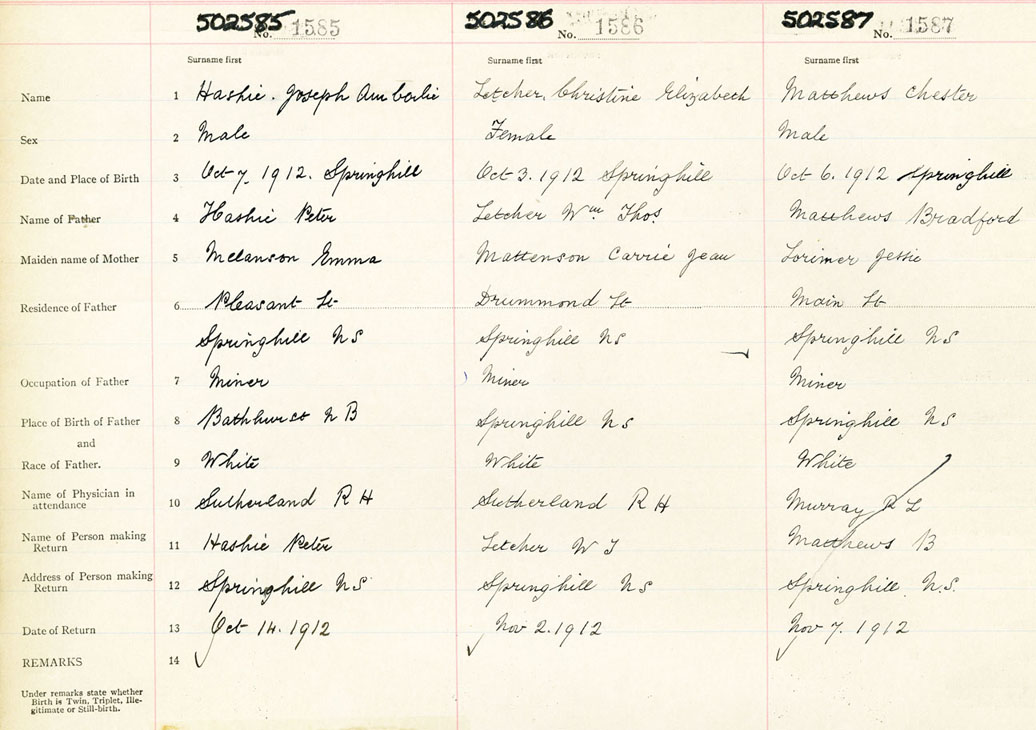 502585 No. 1585 502586 No. 1586 502587 No. 1587
Surname first Surname first Surname first
Name 1 Hashie. Joseph Letcher, Christine Elizabeth Matthews Chester
Sex 2 Male Female Male
Date and Place of Birth 3 Oct 7. 1912. Springhill Oct 3. 1912 Springhill Oct 6. 1912 Springhill
Name of Father 4 Hashie Peter Letcher Wm Thos. Matthews Bradford
Maiden name of Mother 5 Melanson Emma Mattenson Carrie Jean Lorimer Jessie
Residence of Father 6 Pleasant St Drummond St Main St
Springhill NS Springhill NS Springhill NS
Occupation of Father 7 Miner Miner Miner
Place of Birth of Father 8 Bathhurst N B Springhill NS Springhill NS
and
Race of Father. 9 White White White
Name of Physician in
attendance 10 Sutherland R H Sutherland R H Murray R L
Name of Person making
Return 11 Hashie Peter Letcher W T Matthews B
Address of Person making
Return 12 Springhill NS Springhill NS Springhill N.S.
Date of Return 13 Oct 14. 1912 Nov 2. 1912 Nov 7. 1912
REMARKS 14
Under remarks state whether
Birth is Twin, Triplet, Ille-
gitimate or Still-birth.